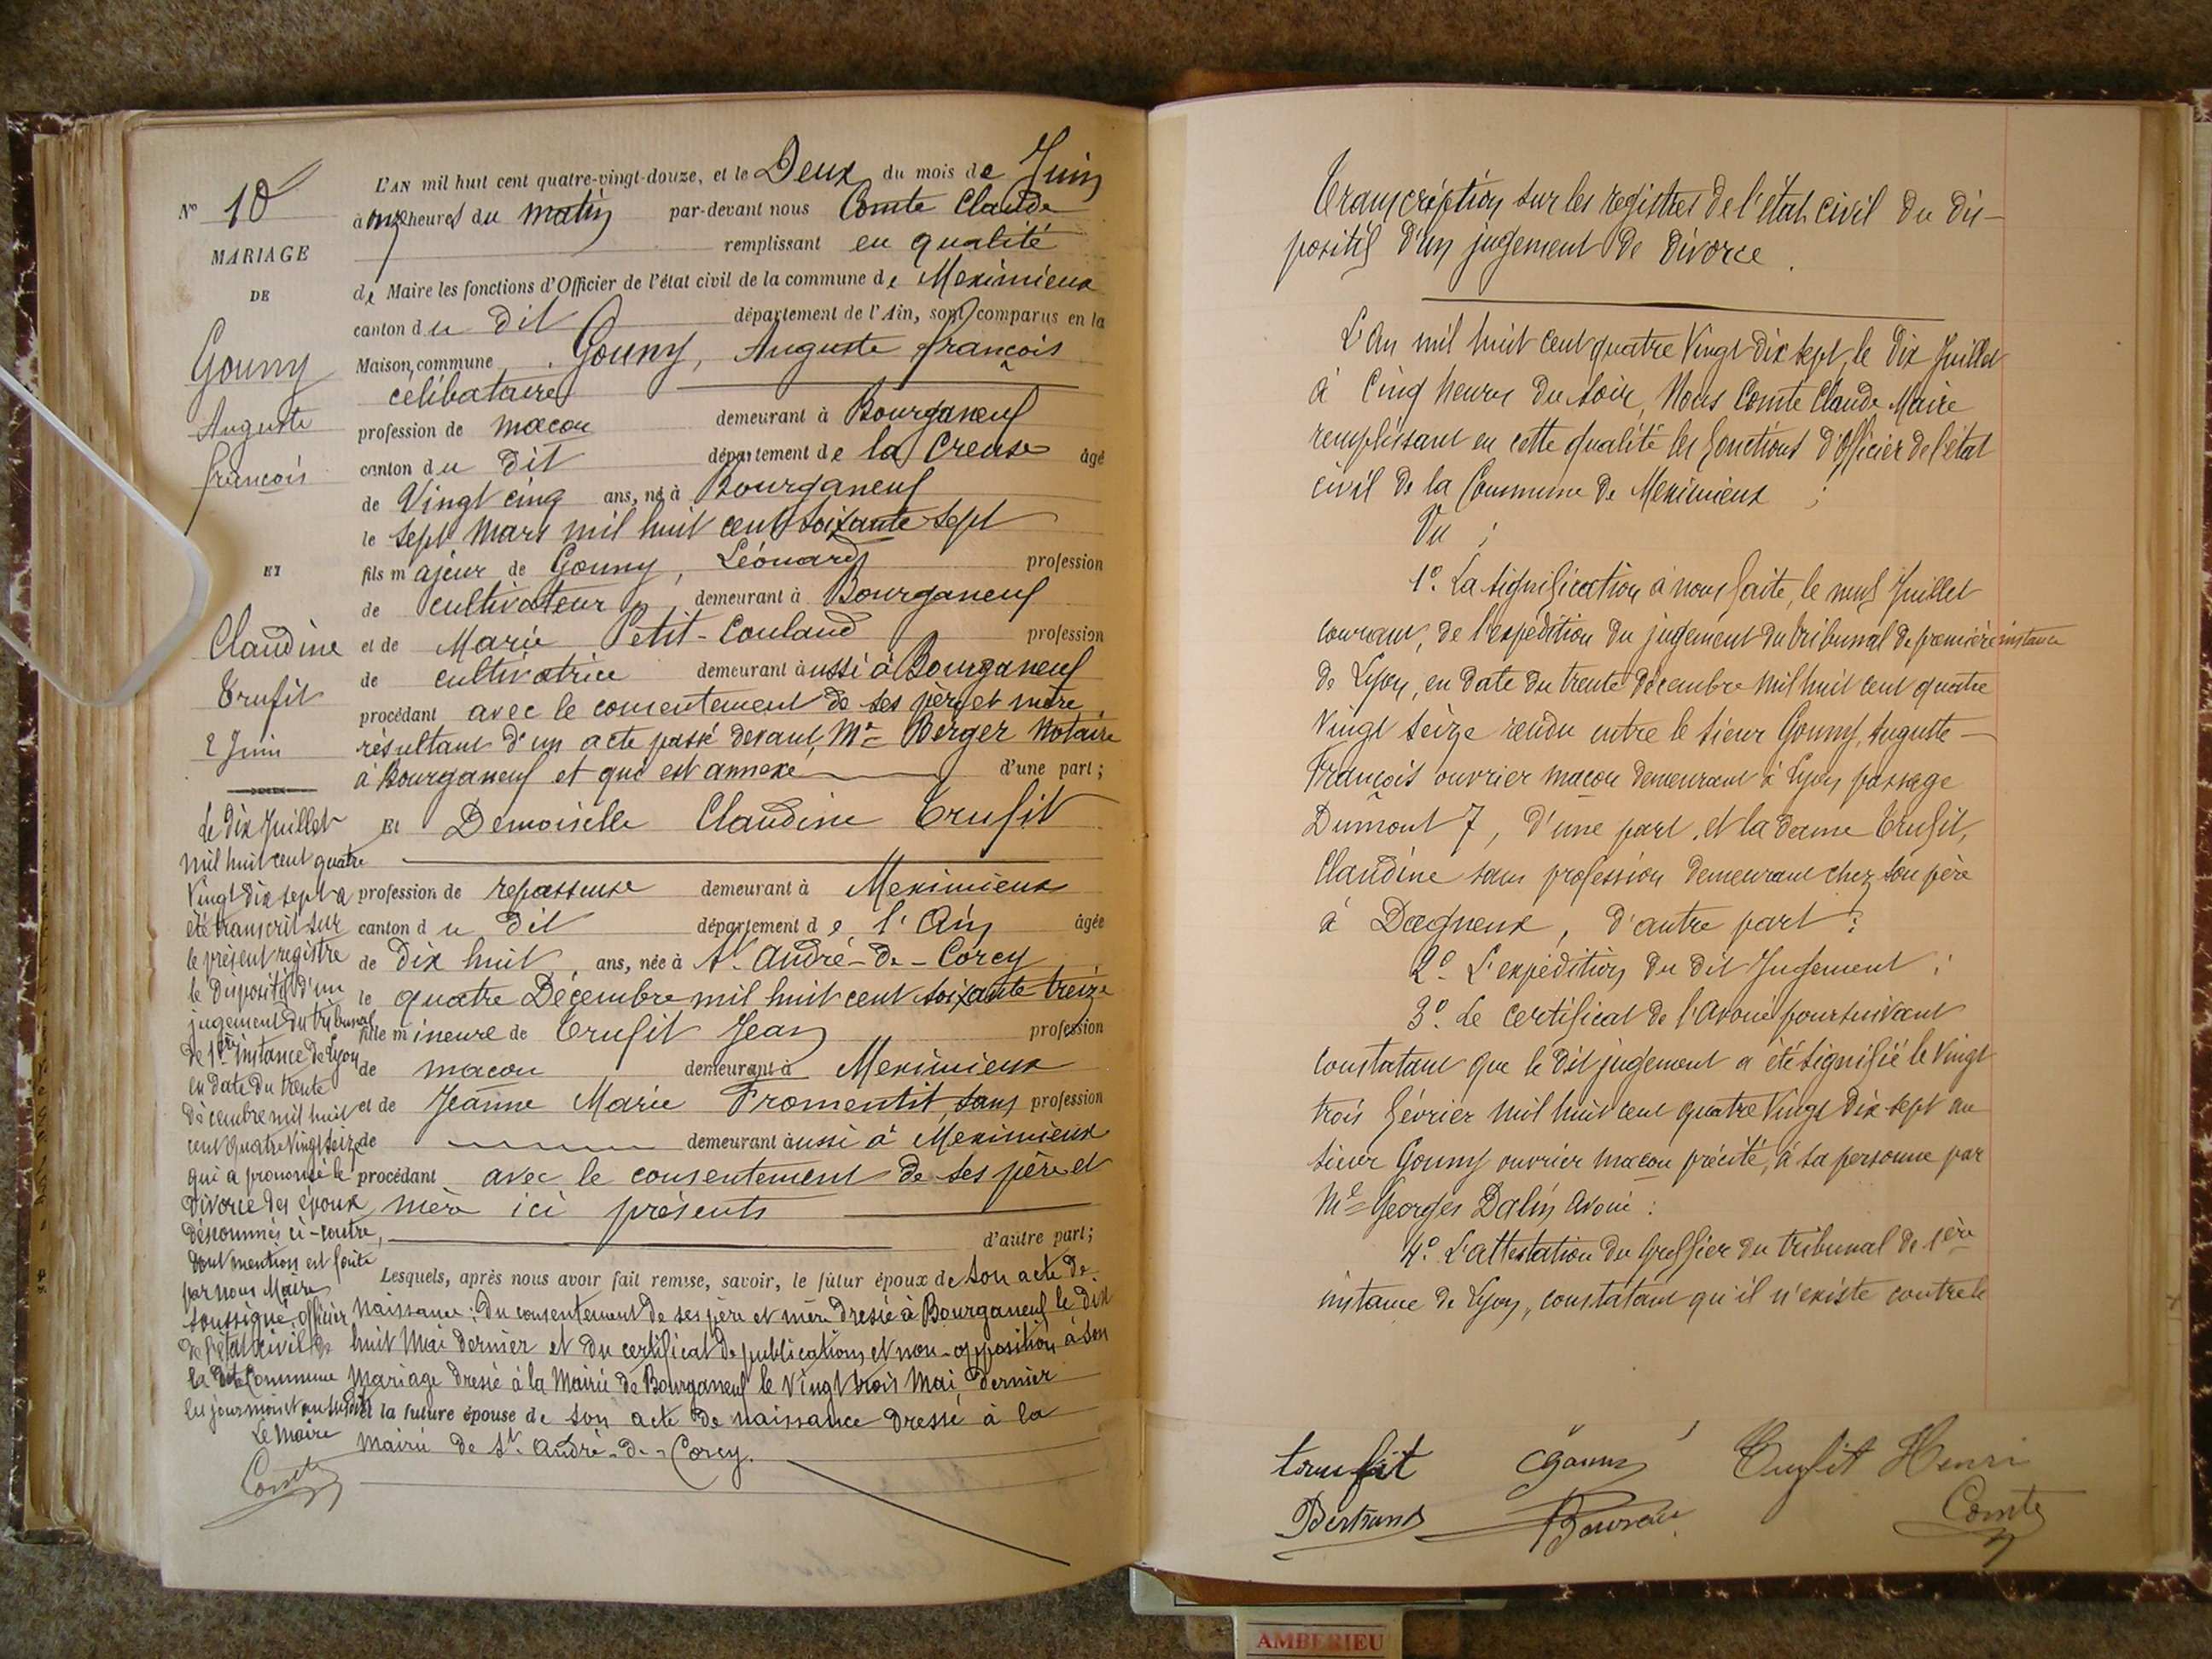 N° 10
MARIAGE
DE
Gouny
Auguste
françois
ET
Claudine
Trufit
2 Juin
Le dix Juillet
mil huit cent quatre
Vingt dix sept a
été transcrit sur
le présent registre
le dispositif d'un
jugement du tribunal
de 1ère instance de Lyon
en date du trente
décembre mil huit
cent quatre vingt seize
qui a prononcé le
divorce des époux
dénommés ci-contre,
dont mention est faite
par nous Maire
soussigné, officier
de l'état civil de
la dite Commune
les jour mois et an susdits
Le Maire
Comte
L'AN mil huit cent quatre-vingt-douze, et le Deux du mois de Juin
à onze heures du matin par-devant nous Comte Claude
remplissant en qualité
de Maire les fonctions d'Officier de l'état civil de la commune de Meximieux
canton du dit département de l'Ain, sont comparus en la
Maison commune . Gouny, Auguste françois
célibataire
profession de macon demeurant à Bourganeuf
canton du dit département de la Creuse âgé
de Vingt cinq ans, né à Bourganeuf
le sept Mars mil huit cent soixante sept
fils majeur de Gouny, Léonard profession
de cultivateur demeurant à Bourganeuf
et de Marie Petit-Coulaud profession
de cultivatrice demeurant aussi à Bourganeuf
procédant avec le consentement de ses père et mère
résultant d'un acte passé devant Me Berger Notaire
à Bourganeuf et qui est annexé d'une part;
Et Demoiselle Claudine Trufit
profession de repasseuse demeurant à Meximieux
canton du dit département de l'Ain âgée
de Dix huit ans, née à St André-de-Corcy
le quatre Décembre mil huit cent soixante treize
fille mineure de Trufit Jean profession
de macon demeurant à Meximieux
et de Jeanne Marie Fromentit, sans profession
de demeurant aussi à Meximieux
procédant avec le consentement de ses père et
mère ici présents
d'autre part;
Lesquels, après nous avoir fait remise, savoir, le futur époux de son acte de
naissance; du consentement de ses père et mère dressé à Bourganeuf le dix
huit Mai dernier et du certificat de publications et non-opposition à son
mariage dressé à la Mairie de Bourganeuf le vingt trois Mai dernier
et la future épouse de son acte de naissance dressé à la
mairie de St André-de-Corcy.
Transcription sur les registres de l'état civil du dis-
positif d'un jugement de divorce.
L'An mil huit cent quatre Vingt dix sept, le dix Juillet
à Cinq heures du soir, Nous Comte Claude Maire
remplissant en cette qualité les fonctions d'Officier de l'état
civil de la Commune de Meximieux ;
Vu ;
1°. La signification à nous faite, le neuf Juillet
courant, de l'expédition du jugement du tribunal de première instance
de Lyon, en date du trente décembre mil huit cent quatre
Vingt seize rendu entre le sieur Gouny, Auguste -
François ouvrier macon demeurant à Lyon passage
Dumont 7, d'une part, et la dame Trufit,
Claudine sans profession demeurant chez son père
à Dagneux, d'autre part ;
2°. L'expédition du dit Jugement ;
3°. Le Certificat de l'Avoué poursuivant
constatant que le dit jugement a été signifié le Vingt
trois février mil huit cent quatre Vingt dix sept au
sieur Gouny ouvrier macon précité, à sa personne par
Me Georges Dalin Avoué :
4°. L'attestation du Greffier du tribunal de 1ère
instance de Lyon, constatant qu'il n'existe contre le
trufit Gouny Trufit Henri
Bertrand Comte
AMBERIEU